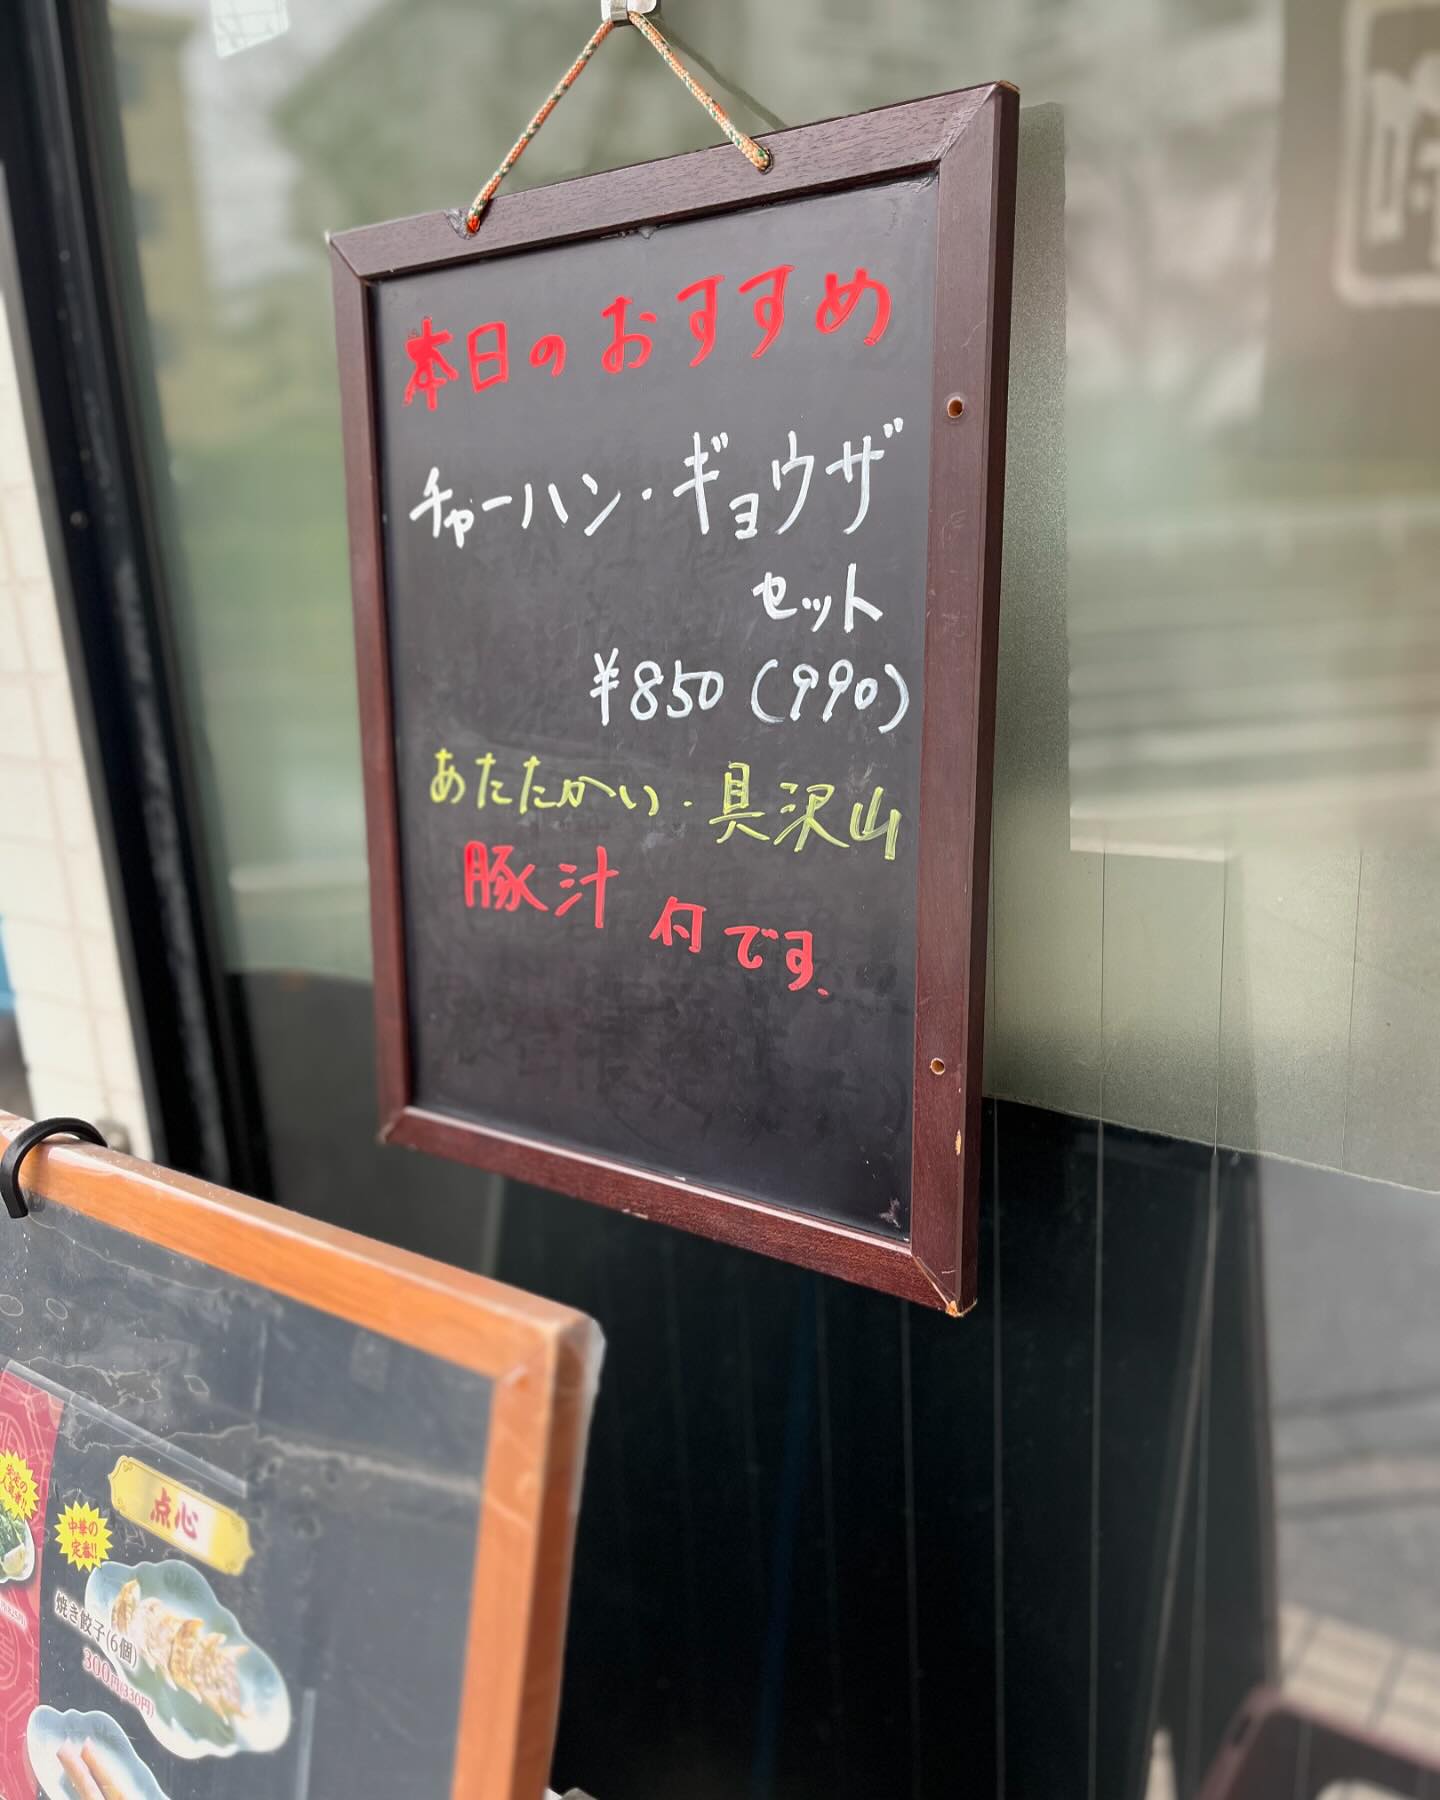 本日のおすすめ
チャーハン・ギョウザ
セット
¥850(990)
あたたかい・具沢山
豚汁 付です.
点心
中華の
定番!!
焼き餃子(6個)
300円(330円)